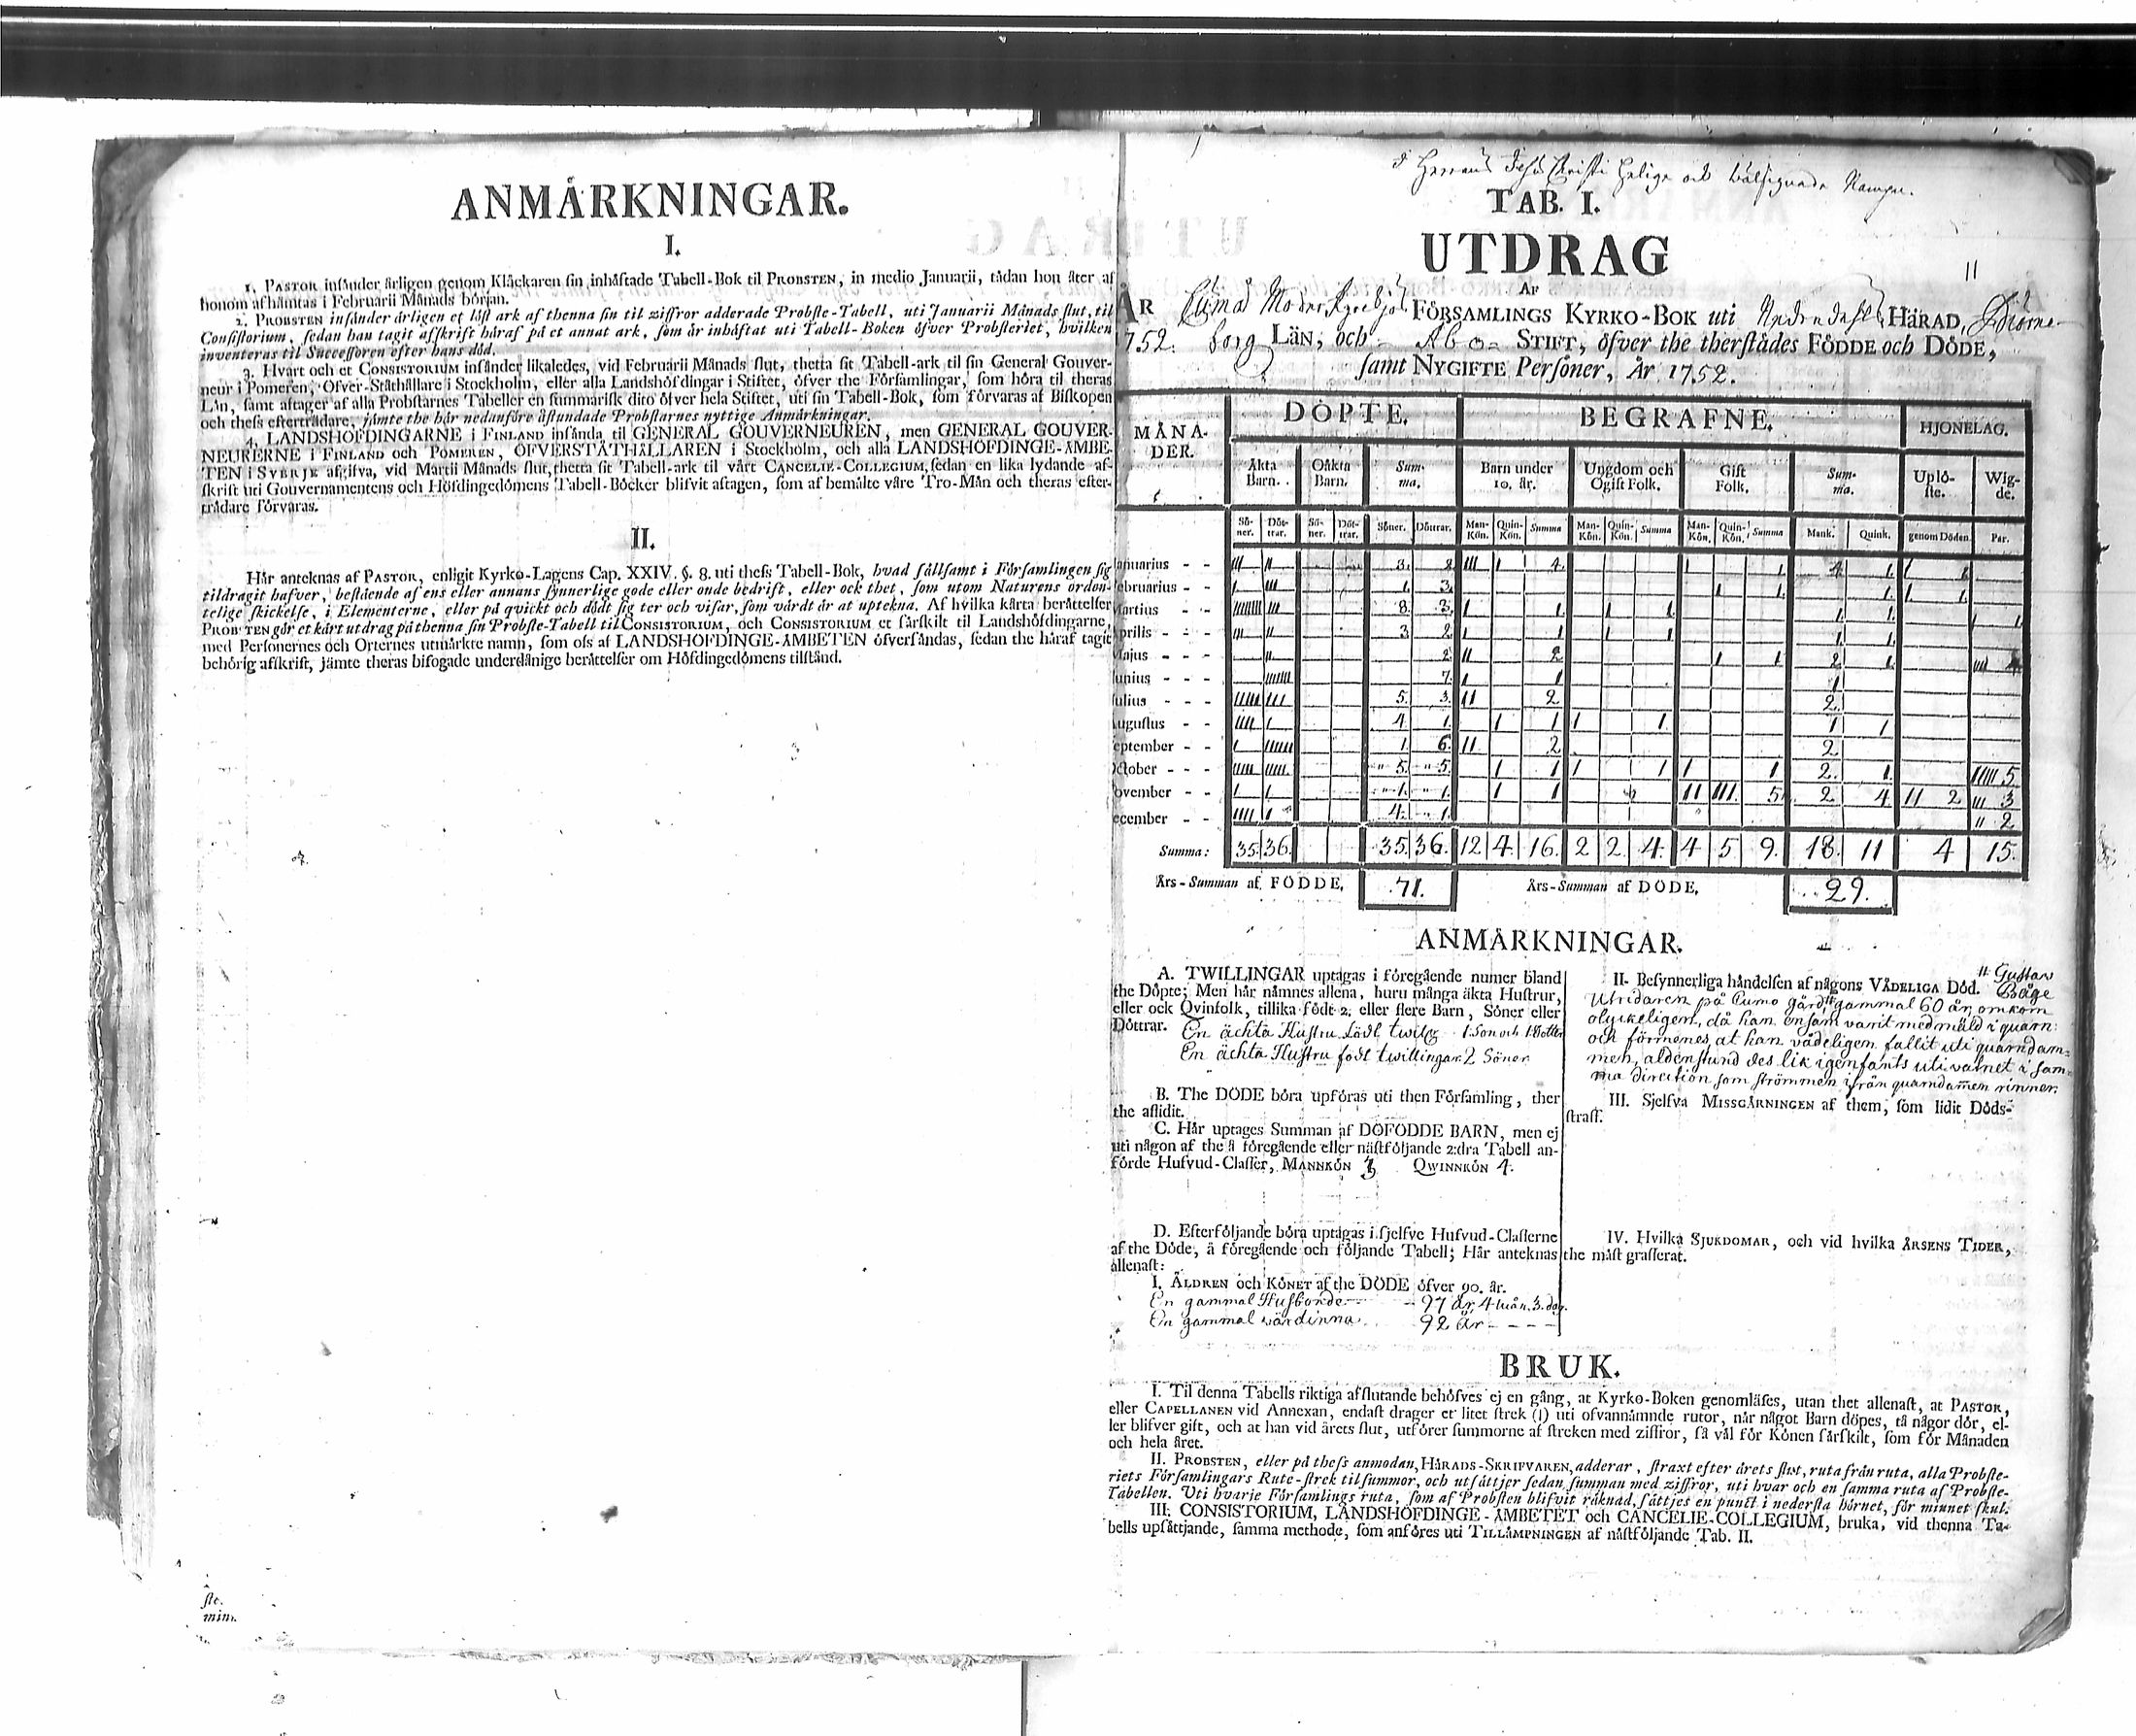 ANMÄRKNINGAR.
I.
1. PASTOR insänder årligen genom Klåckaren sin inhäftade Tabell-Bok til PROBSTEN, in medio Januarii, tådan hon åter af
honom afhämtas i Februarii Månads början.
2. PROBSTEN insänder årligen et löst ark af thenna sin til ziffror adderade Probste-Tabell, uti Januarii Månads slut, til
Consistorium, sedan han tagit afskrift häraf på et annat ark, som är inhäftat uti Tabell-Boken öfver Probsteriet, hvilken
inventeras til Successoren efter hans död.
3. Hvart och et CONSISTORIUM insänder likaledes, vid Februarii Månads slut, thetta sit Tabell-ark til sin General Gouver-
neur i Pomeren, Öfver-Ståthållare i Stockholm, eller alla Landshöfdingar i Stiftet, öfver the Församlingar, som höra til theras
Län, samt aftager af alla Probstarnes Tabeller en summarisk dito öfver hela Stiftet, uti sin Tabell-Bok, som förvaras af Biskopen
och thess efterträdare, jämte the här nedanföre åstundade Probstarnes nyttige Anmärkningar.
4. LANDSHÖFDINGARNE i FINLAND insända til GENERAL GOUVERNEUREN, men GENERAL GOUVER-
NEURERNE i FINLAND och POMEREN, ÖFVERSTÅTHÅLLAREN i Stockholm, och alla LANDSHÖFDINGE-ÄMBE-
TEN i SVERJE afgifva, vid Martii Månads slut, thetta sit Tabell-ark til vårt CANCELIE-COLLEGIUM, sedan en lika lydande af-
skrift uti Gouvernamentens och Höfdingedömens Tabell-Böcker blifvit aftagen, som af bemälte våre Tro-Män och theras efter-
trädare förvaras.
II.
Här anteknas af PASTOR, enligit Kyrko-Lagens Cap. XXIV. §. 8. uti thess Tabell-Bok, hvad sällsamt i Församlingen sig
tildragit hafver, bestående af ens eller annans synnerlige gode eller onde bedrift, eller ock thet, som utom Naturens ordon-
telige skickelse, i Elementerne, eller på qvickt och dödt sig ter och visar, som värdt är at uptekna. Af hvilka karta berättelser
PROBSTEN gör et kårt utdrag på thenna sin Probste-Tabell til CONSISTORIUM, och CONSISTORIUM et särskilt til Landshöfdingarne,
med Personernes och Orternes utmärkte namn, som oss af LANDSHÖFDINGE-ÄMBETEN öfversändas, sedan the häraf tagit
behörig afskrift, jämte theras bifogade underdånige berättelser om Höfdingedömens tilstånd.
ste.
mim.
I Herrans Jesu Christi helige och wälsignade Nampn.
TAB. I.
UTDRAG
11
AF
ÅR FÖRSAMLINGS KYRKO-BOK uti HÄRAD, Biörne-
1752. borg LÄN, och Åbo STIFT, öfver the therstädes FÖDDE och DÖDE,
samt NYGIFTE Personer, År 1752.
MÅNA-DER. DÖPTE. BEGRAFNE. HJONELAG.
Äkta Barn. Oäkta Barn. Sum-ma. Barn under 10. år. Ungdom och Ogift Folk. Gift Folk. Sum-ma. Uplö-ste. Wig-de.
Sö-ner. Döt-trar. Sö-ner. Döt-trar. Söner. Döttrar. Man-Kön. Quin-Kön. Summa Man-Kön. Quin-Kön. Summa Man-Kön. Quin-Kön. Summa Mank. Quink. genom Döden. Par.
anuarius - - III II 3. 2 III 1 4. 1 1 4 1. 1 1.
ebruarius - - I III 1. 3. 1 1. 1. 1 1.
Martius - - IIIIIIII III 8. 3. 1 1. 1 1. 1. 1. 1 1.
prilis - - - III II 3 2. 1 1 1 1. 1. 1.
Majus - - - II 2. II 2 1 1 2 1. IIII 4
unius - - - IIIIIII 7. 1 1 1
ulius - - - IIIII III 5. 3. II 2 2.
ugustus - - IIII I 4. 1. 1 1 1 1. 1 1
eptember - - I IIIIII 1. 6. II 2 2
ctober - - - IIIII IIIII 5. 5. 1 1 1 1 1 1 2. 1. IIIII 5
ovember - - I I 1. 1. 1 1 II III. 5. 2 4 II 2 III 3
ecember - - IIII I 4. 1. II 2
Summa: 35. 36. 35. 36. 12 4. 16. 2 2. 4. 4 5 9. 18. 11 4 15.
Års-Summan af FÖDDE, 71. Års-Summan af DÖDE, 29.
ANMÄRKNINGAR.
A. TWILLINGAR uptagas i föregående numer bland
the Döpte; Men här nämnes allena, huru många äkta Hustrur,
eller ock Qvinfolk, tillika födt 2. eller flere Barn, Söner eller
Döttrar. En ächta Hustru födt twilg 1 Son och 1 Dotter
En ächta Hustru födt twillingar 2 Söner
B. The DÖDE böra upföras uti then Församling, ther
the aflidit.
C. Här uptages Summan af DÖFÖDDE BARN, men ej
uti någon af the å föregående eller nästföljande 2:dra Tabell an-
förde Hufvud-Classer, MANNKÖN 3 QWINNKÖN 4.
D. Efterföljande böra uptagas i sjelfve Hufvud-Classerne
af the Döde, å föregående och följande Tabell; Här anteknas
allenast:
I. ÅLDREN och KÖNET af the DÖDE öfver 90. år.
En gammal Husbonde - - 97 år, 4 mån. 3. dag.
En gammal wärdinna 92 år - - - -
II. Besynnerliga händelsen af någons VÅDELIGA Död. # Gustav
Båge
Utridaren på Cumo gård # gammal 60 år, omkom
olyckeligen, då han ensam varit med mäld i quarn:
och förmenes, at han vådeligen fallit uti quarndam-
men, aldenstund des lik igenfants uti vatnet i sam-
ma direction som strömmen ifrån quarndam̄en rinner.
III. Sjelfva MISSGÄRNINGEN af them, som lidit Döds-
straff.
IV. Hvilka SJUKDOMAR, och vid hvilka ÅRSENS TIDER,
the mäst grasserat.
BRUK.
I. Til denna Tabells riktiga afslutande behöfves ej en gång, at Kyrko-Boken genomläses, utan thet allenast, at PASTOR,
eller CAPELLANEN vid Annexan, endast drager et litet strek (|) uti ofvannämnde rutor, när något Barn döpes, tå någor dör, el-
ler blifver gift, och at han vid årets slut, utförer summorne af streken med ziffror, så väl för Könen särskilt, som för Månaden
och hela året.
II. PROBSTEN, eller på thess anmodan, HÄRADS-SKRIFVAREN, adderar, straxt efter årets slut, ruta från ruta, alla Probste-
riets Församlingars Rute-strek til summor, och utsättjer sedan summan med ziffror, uti hvar och en samma ruta af Probste-
Tabellen. Uti hvarje Församlings ruta, som af Probsten blifvit räknad, sättjes en punct i nedersta hörnet, för minnet skul.
III. CONSISTORIUM, LANDSHÖFDINGE-ÄMBETET och CANCELIE-COLLEGIUM, bruka, vid thenna Ta-
bells upsättjande, samma methode, som anföres uti TILLÄMPNINGEN af nästföljande Tab. II.